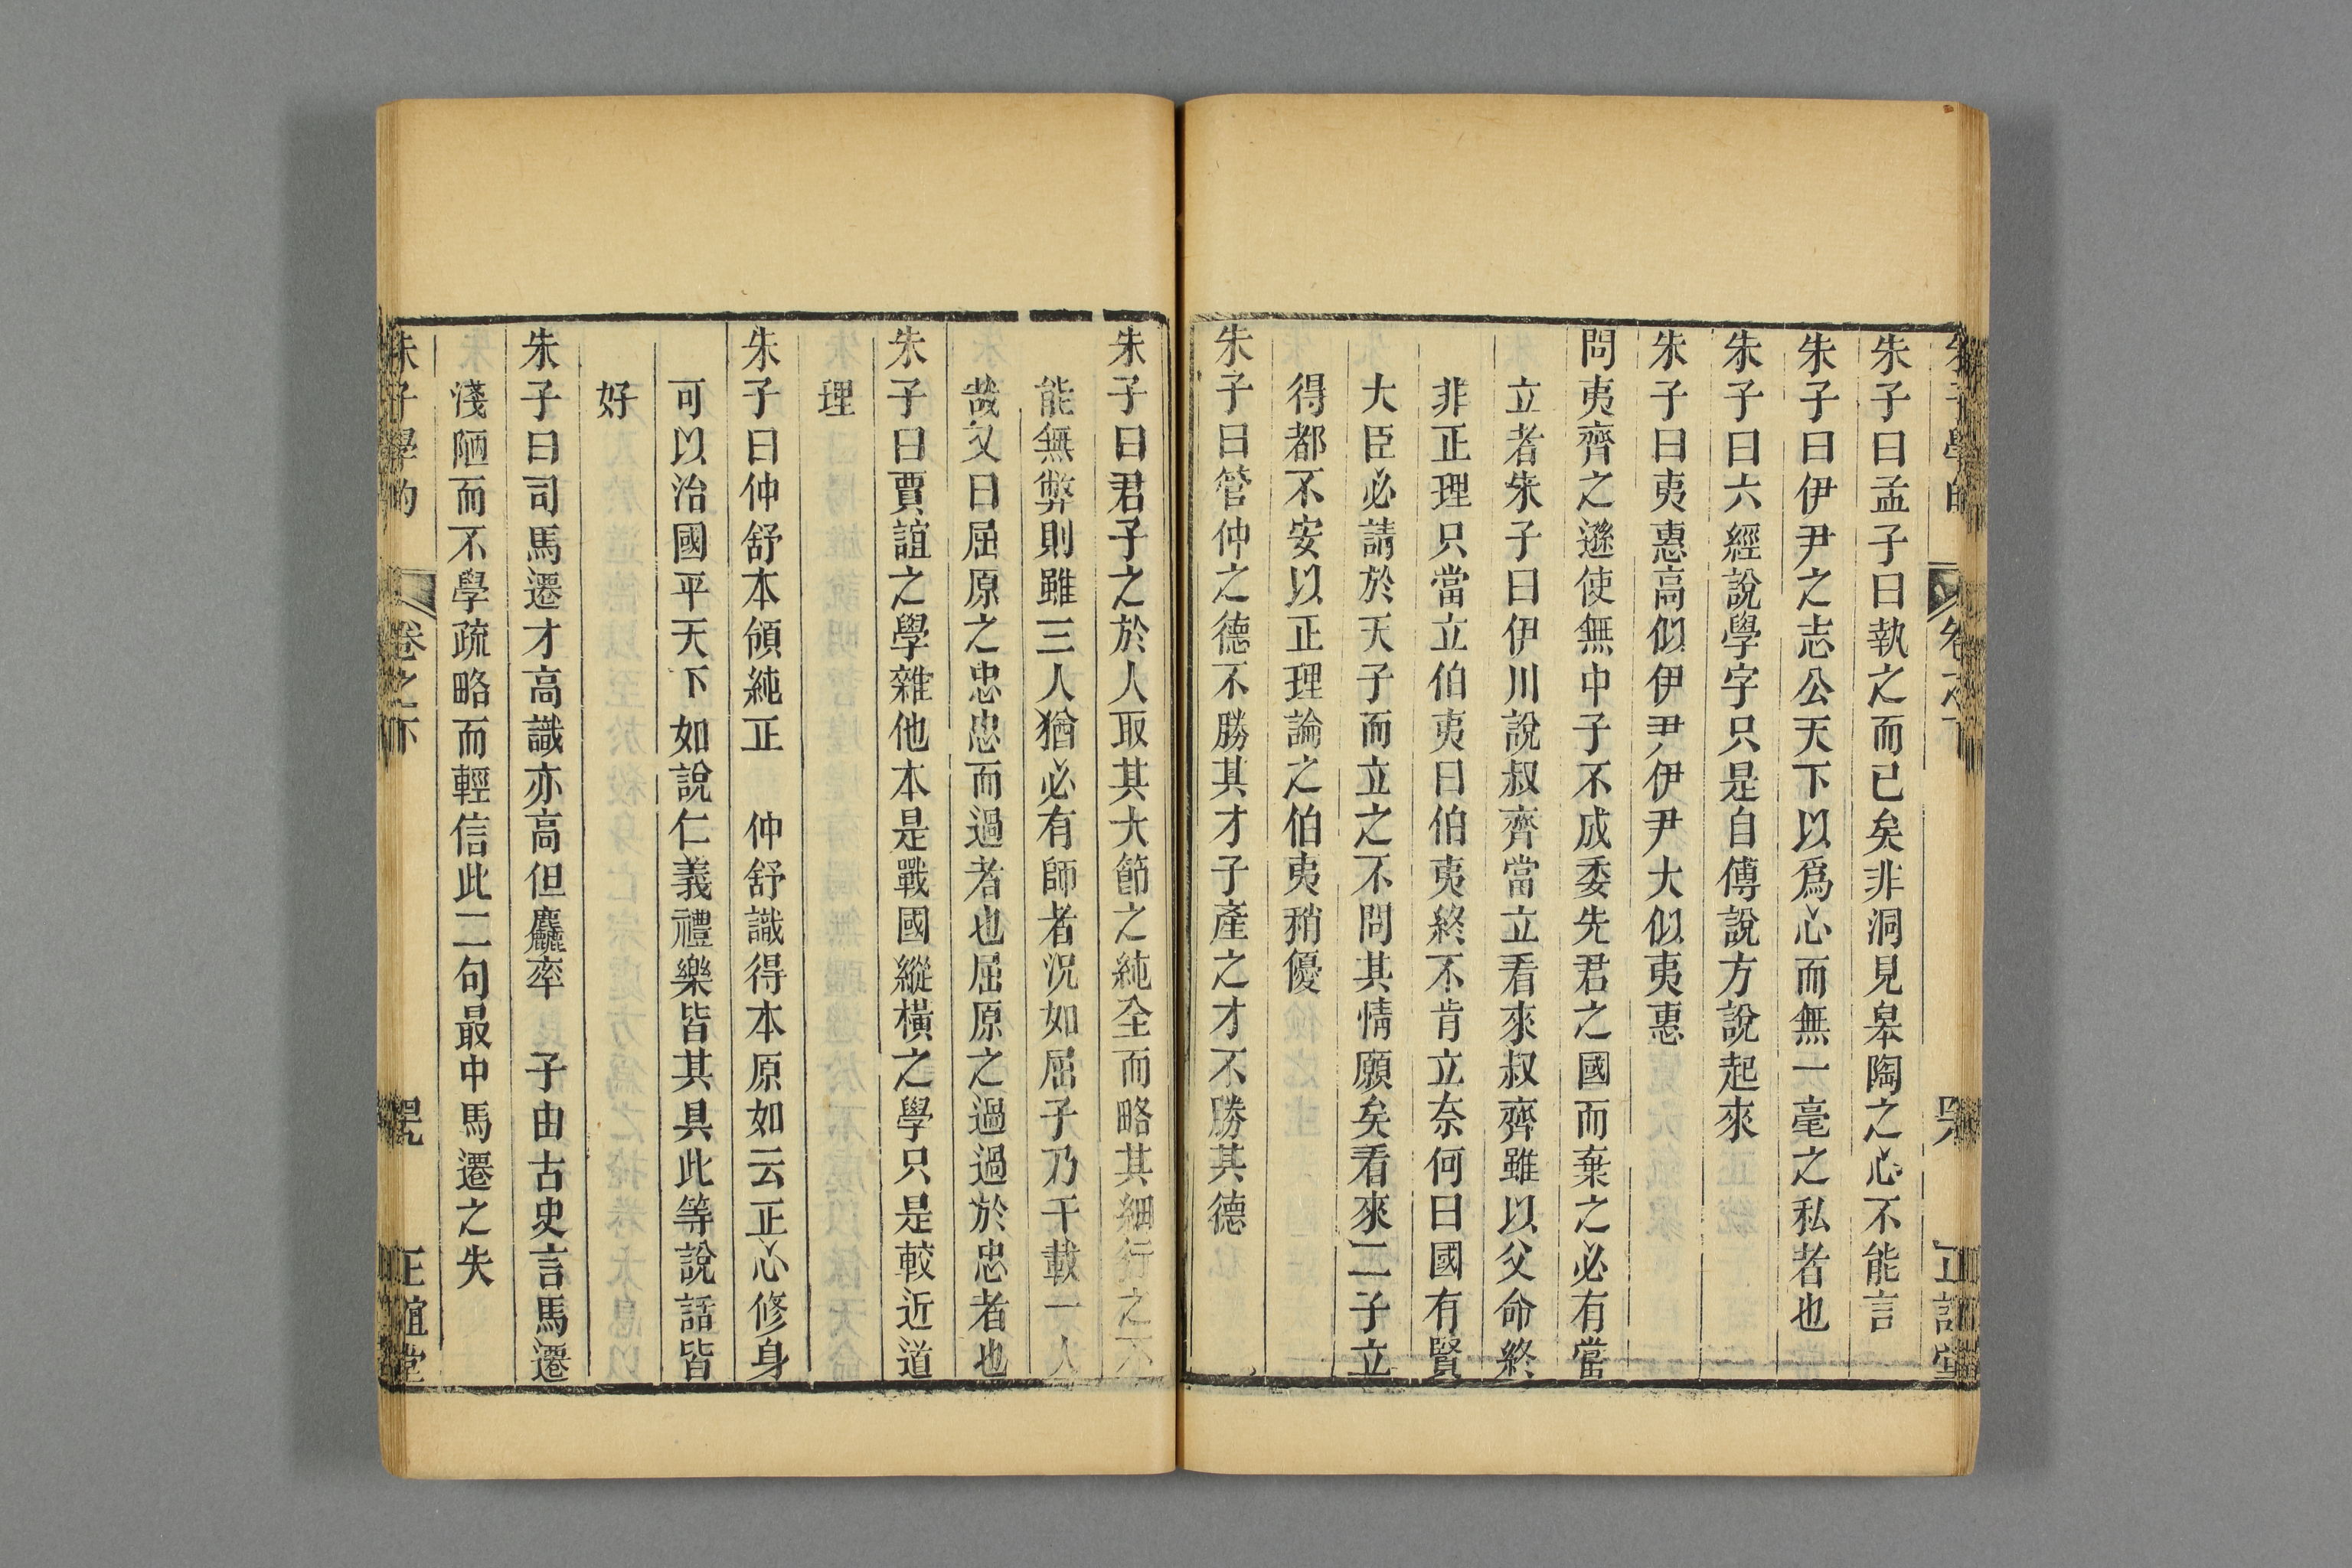 朱子曰孟子曰執之而已矣非洞見皋陶之心不能言
朱子曰伊尹之志公天下以爲心而無一毫之私者也
朱子曰六經說學字只是自傅說方說起來
朱子曰夷惠高似伊尹伊尹大似夷惠
問夷齊之遜使無中子不成委先君之國而棄之必有當
立者朱子曰伊川說叔齊當立看來叔齊雖以父命終
非正理只當立伯夷曰伯夷終不肯立奈何曰國有賢
大臣必請於天子而立之不問其情願矣看來二子立
得都不安以正理論之伯夷稍優
朱子曰管仲之德不勝其才子產之才不勝其德
朱子曰君子之於人取其大節之純全而略其細行之不
能無弊則雖三人猶必有師者況如屈子乃千載一人
哉又曰屈原之忠忠而過者也屈原之過過於忠者也
朱子曰賈誼之學雜他本是戰國縱橫之學只是較近道
理
朱子曰仲舒本領純正　仲舒識得本原如云正心修身
可以治國平天下如說仁義禮樂皆其具此等說話皆
好
朱子曰司馬遷才高識亦高但麤率　子由古史言馬遷
淺陋而不學疏略而輕信此二句最中馬遷之失
朱子學的　卷之下　正誼堂